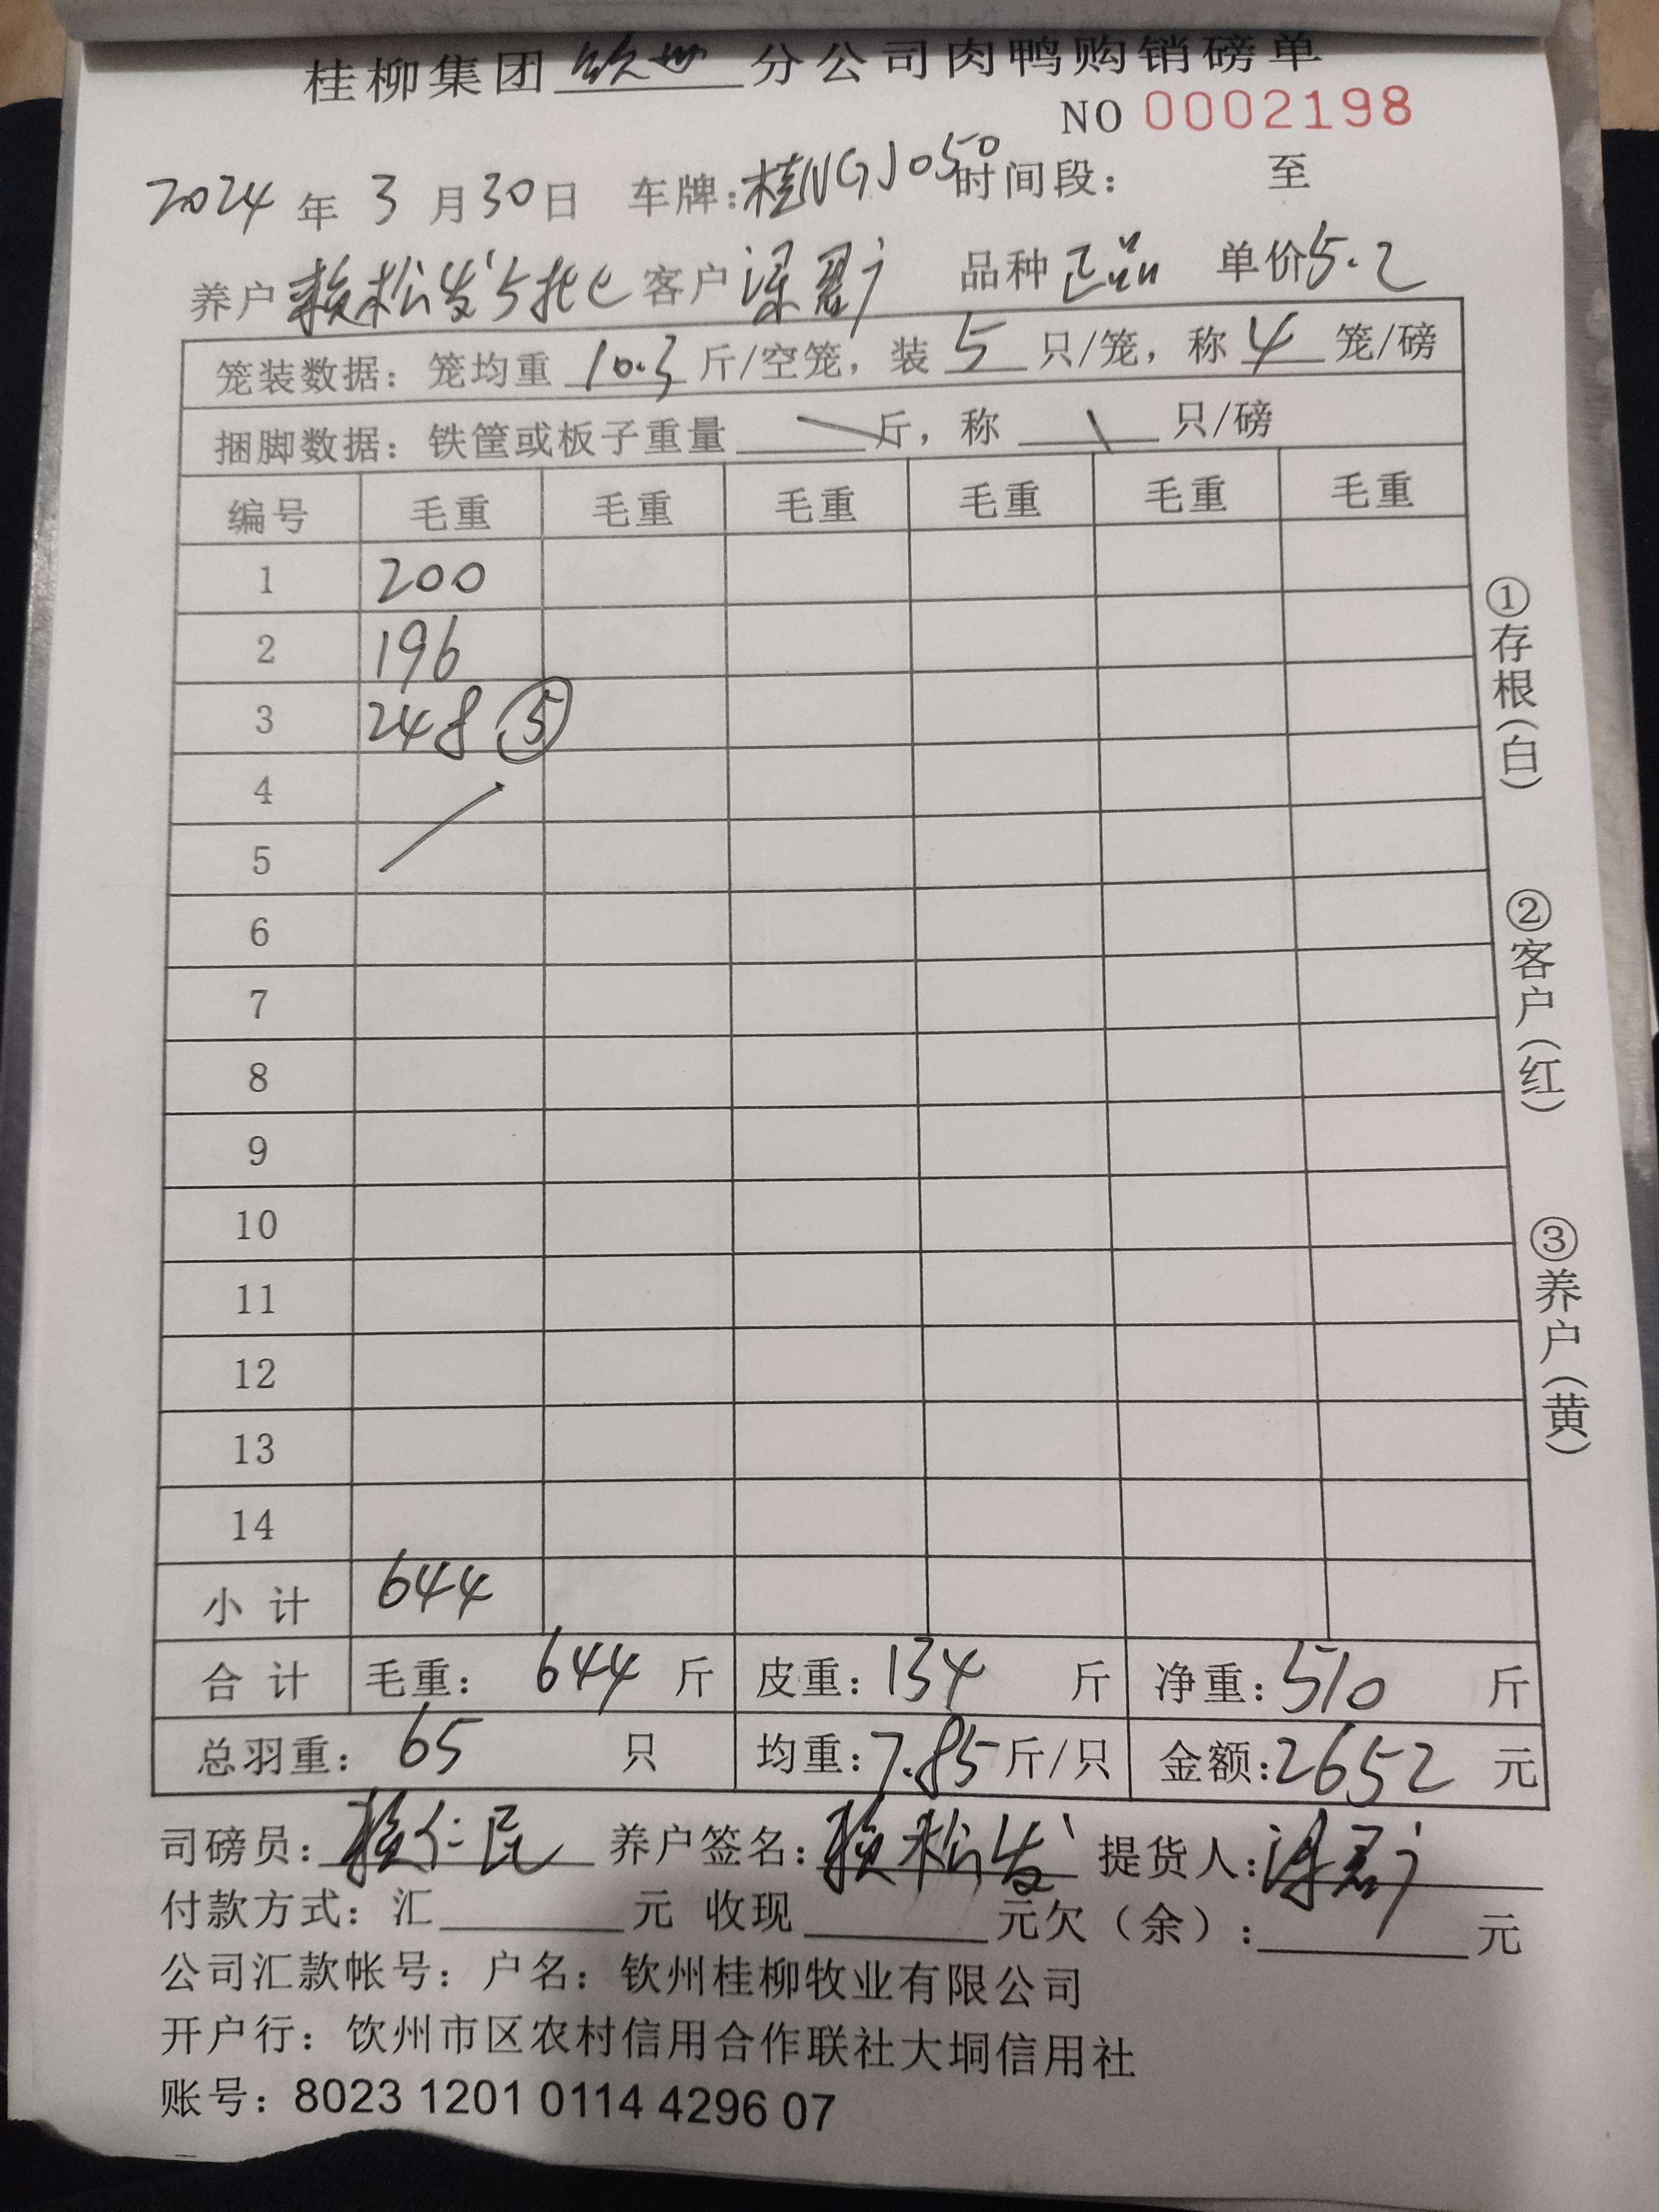 桂柳集团 钦州 分公司肉鸭购销磅单
NO 0002198
2024 年 3 月 30 日 车牌:桂NGJ050 时间段: 至
养户 赖松发 客户 品种 正品 单价 5.2
笼装数据: 笼均重 10.3 斤/空笼, 装 5 只/笼, 称 4 笼/磅
捆脚数据: 铁筐或板子重量 斤, 称 只/磅
编号 毛重 毛重 毛重 毛重 毛重 毛重
1 200
2 196
3 248 ⑤
4
5
6
7
8
9
10
11
12
13
14
小 计 644
合 计 毛重: 644 斤 皮重: 134 斤 净重: 510 斤
总羽重: 65 只 均重: 7.85 斤/只 金额: 2652 元
①存根(白)
②客户(红)
③养户(黄)
司磅员: 赖仁民 养户签名: 赖松发 提货人:
付款方式: 汇 元 收现 元欠(余): 元
公司汇款帐号: 户名: 钦州桂柳牧业有限公司
开户行: 钦州市区农村信用合作联社大垌信用社
账号: 8023 1201 0114 4296 07